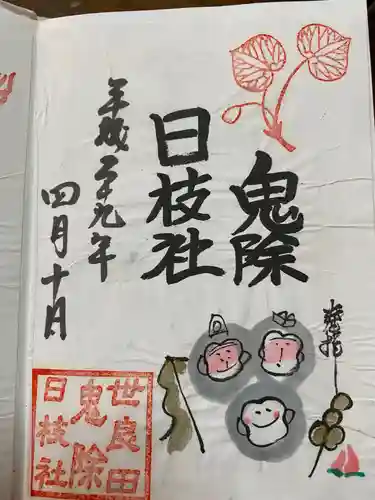 鬼除
日枝社
平成二十九年
四月十日
世良田
鬼除
日枝社